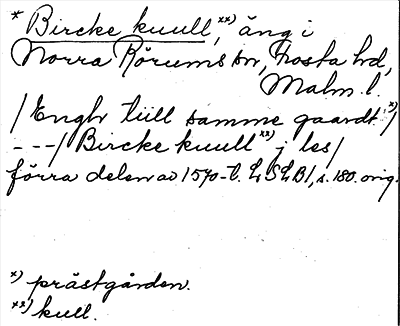 * Bircke kuull,xx) äng i
Norra Rörums sn, Frosta hd,
Malm. l.
/Enghr tiill samme gaardt x)/
---/ Bircke kuull xx) j les/
förra delen av 1570-t. LSLB1, s. 180. orig.
x) prästgården.
xx) kull.